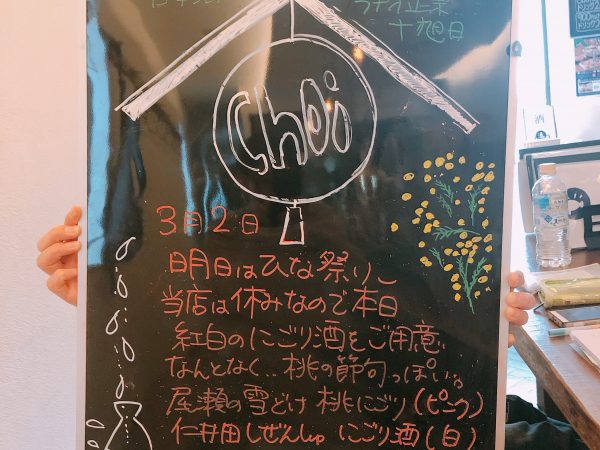 十旭日
Choi
3月2日
明日はひな祭り~
当店は休みなので本日
紅白のにごり酒をご用意、
なんとなく‥桃の節句っぽい。
尾瀬の雪どけ 桃にごり(ピンク)
仁井田しぜんしゅ にごり酒(白)